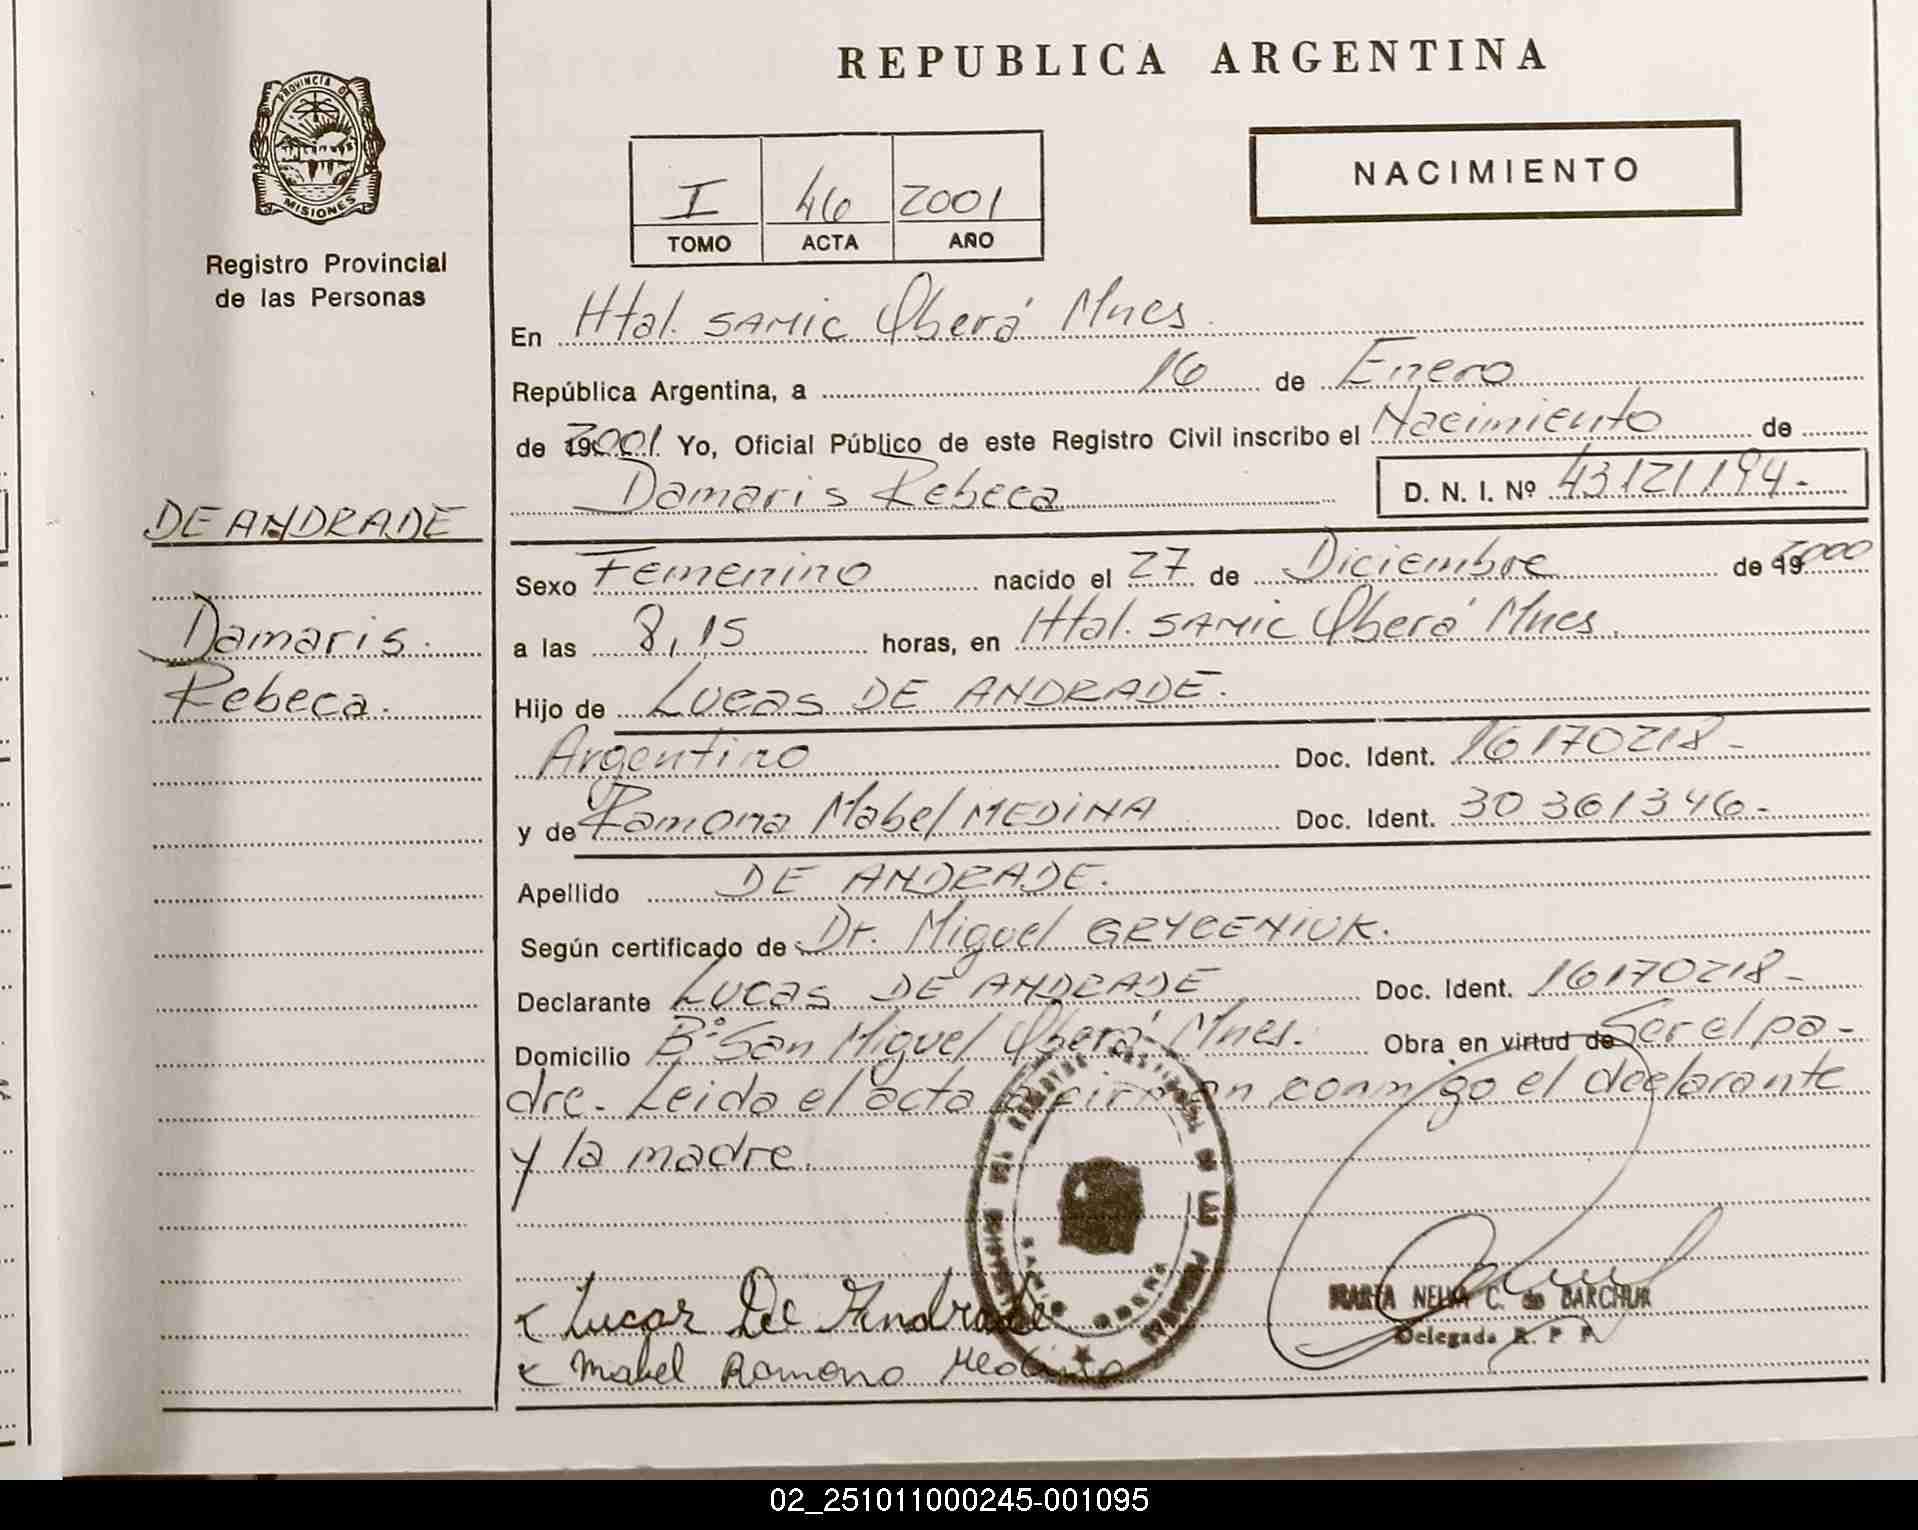 REPUBLICA ARGENTINA
PROVINCIA DE
MISIONES
Registro Provincial
de las Personas
I 46 2001
TOMO ACTA AÑO
NACIMIENTO
En Htal. SAMIC Oberá Mnes.
República Argentina, a 16 de Enero
de 2001 Yo, Oficial Público de este Registro Civil inscribo el Nacimiento de
Damaris Rebeca D. N. I. Nº 43121194.-
DE ANDRADE
Damaris.
Rebeca.
Sexo Femenino nacido el 27 de Diciembre de 2000
a las 8,15 horas, en Htal. SAMIC Oberá Mnes.
Hijo de Lucas DE ANDRADE.
Argentino Doc. Ident. 16170218-
y de Ramona Mabel MEDINA Doc. Ident. 30361346-
Apellido DE ANDRADE.
Según certificado de Dr. Miguel GRYCENIUK.
Declarante Lucas DE ANDRADE Doc. Ident. 16170218-
Domicilio Bº San Miguel Oberá Mnes. Obra en virtud de Ser el pa-
dre. Leida el acta la firman conmigo el declarante
y la madre.
Lucas De Andrade
Mabel Ramona Medina
MARTA NELIDA C. de BARCHUK
Delegada R. P. P.
02_251011000245-001095